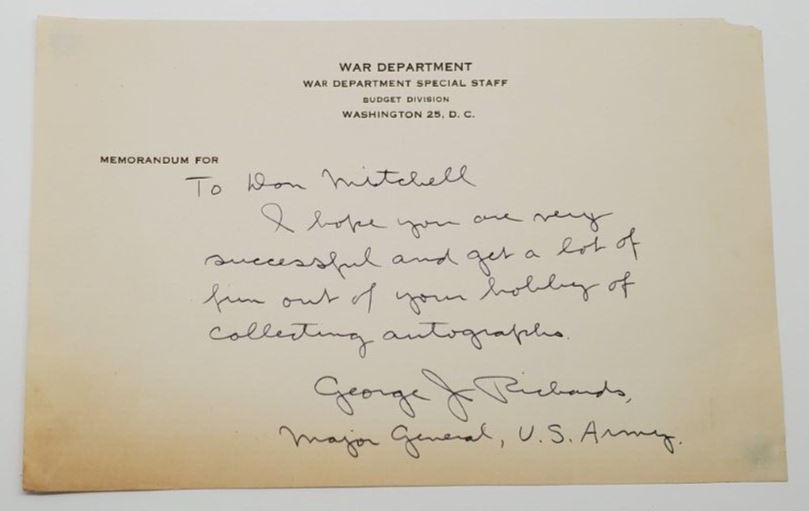 WAR DEPARTMENT
WAR DEPARTMENT SPECIAL STAFF
BUDGET DIVISION
WASHINGTON 25, D. C.
MEMORANDUM FOR
To Don Mitchell
I hope you are very
successful and get a lot of
fun out of your hobby of
collecting autographs.
George J Richards,
Major General, U.S. Army.